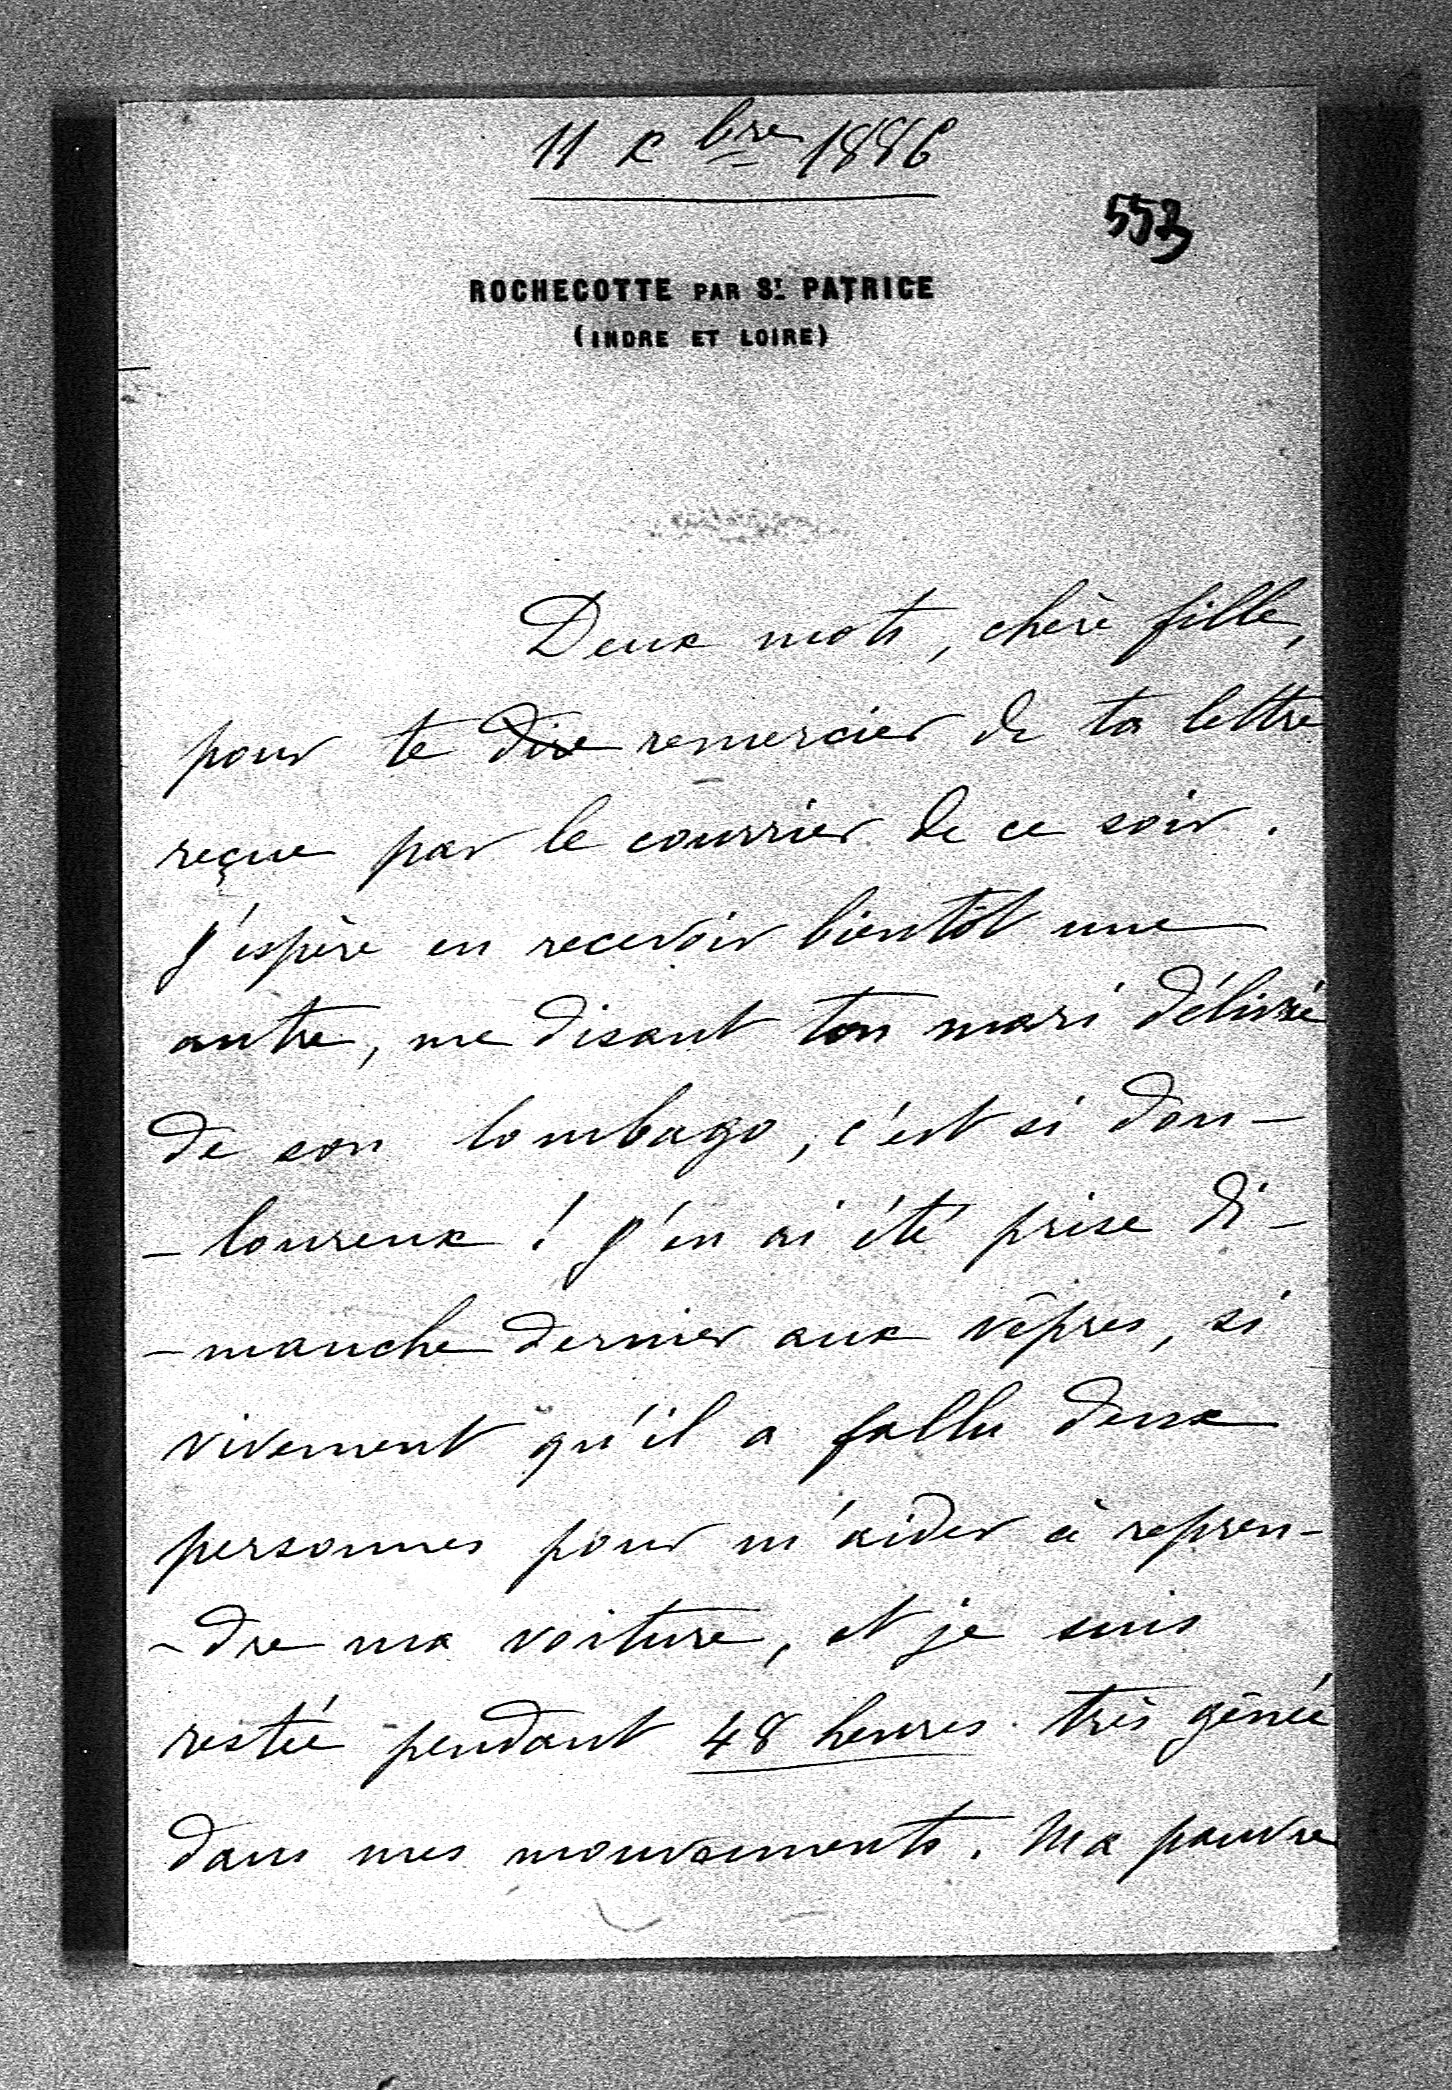 11 Xbre 1886
553
ROCHECOTTE PAR ST PATRICE
(INDRE ET LOIRE)
Deux mots, chère fille,
pour te dire remercier de ta lettre
reçue par le courrier de ce soir.
J'espère en recevoir bientôt une
autre, me disant ton mari délivré
de son lombago, c'est si dou-
-loureux ! J'en ai été prise di-
-manche dernier aux vêpres, si
vivement qu'il a fallu deux
personnes pour m'aider à repren-
-dre ma voiture, et je suis
restée pendant 48 heures très gênée
dans mes mouvements. Ma pauvre